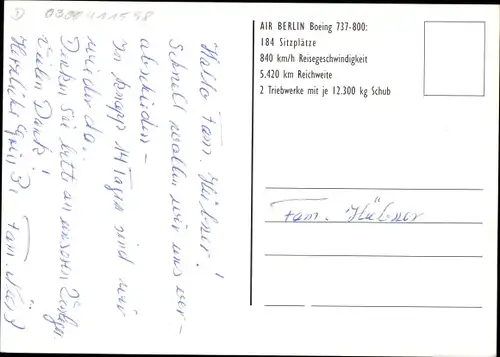 D 03004 11558
AIR BERLIN Boeing 737-800:
184 Sitzplätze
840 km/h Reisegeschwindigkeit
5.420 km Reichweite
2 Triebwerke mit je 12.300 kg Schub
Fam. Hübner
Hallo Fam. Hübner!
Schnell wollen wir uns ver-
abschieden -
In knapp 14 Tagen sind wir
wieder da.
Denken Sie bitte an unseren
Vielen Dank!
Herzliche Grüße Fam.